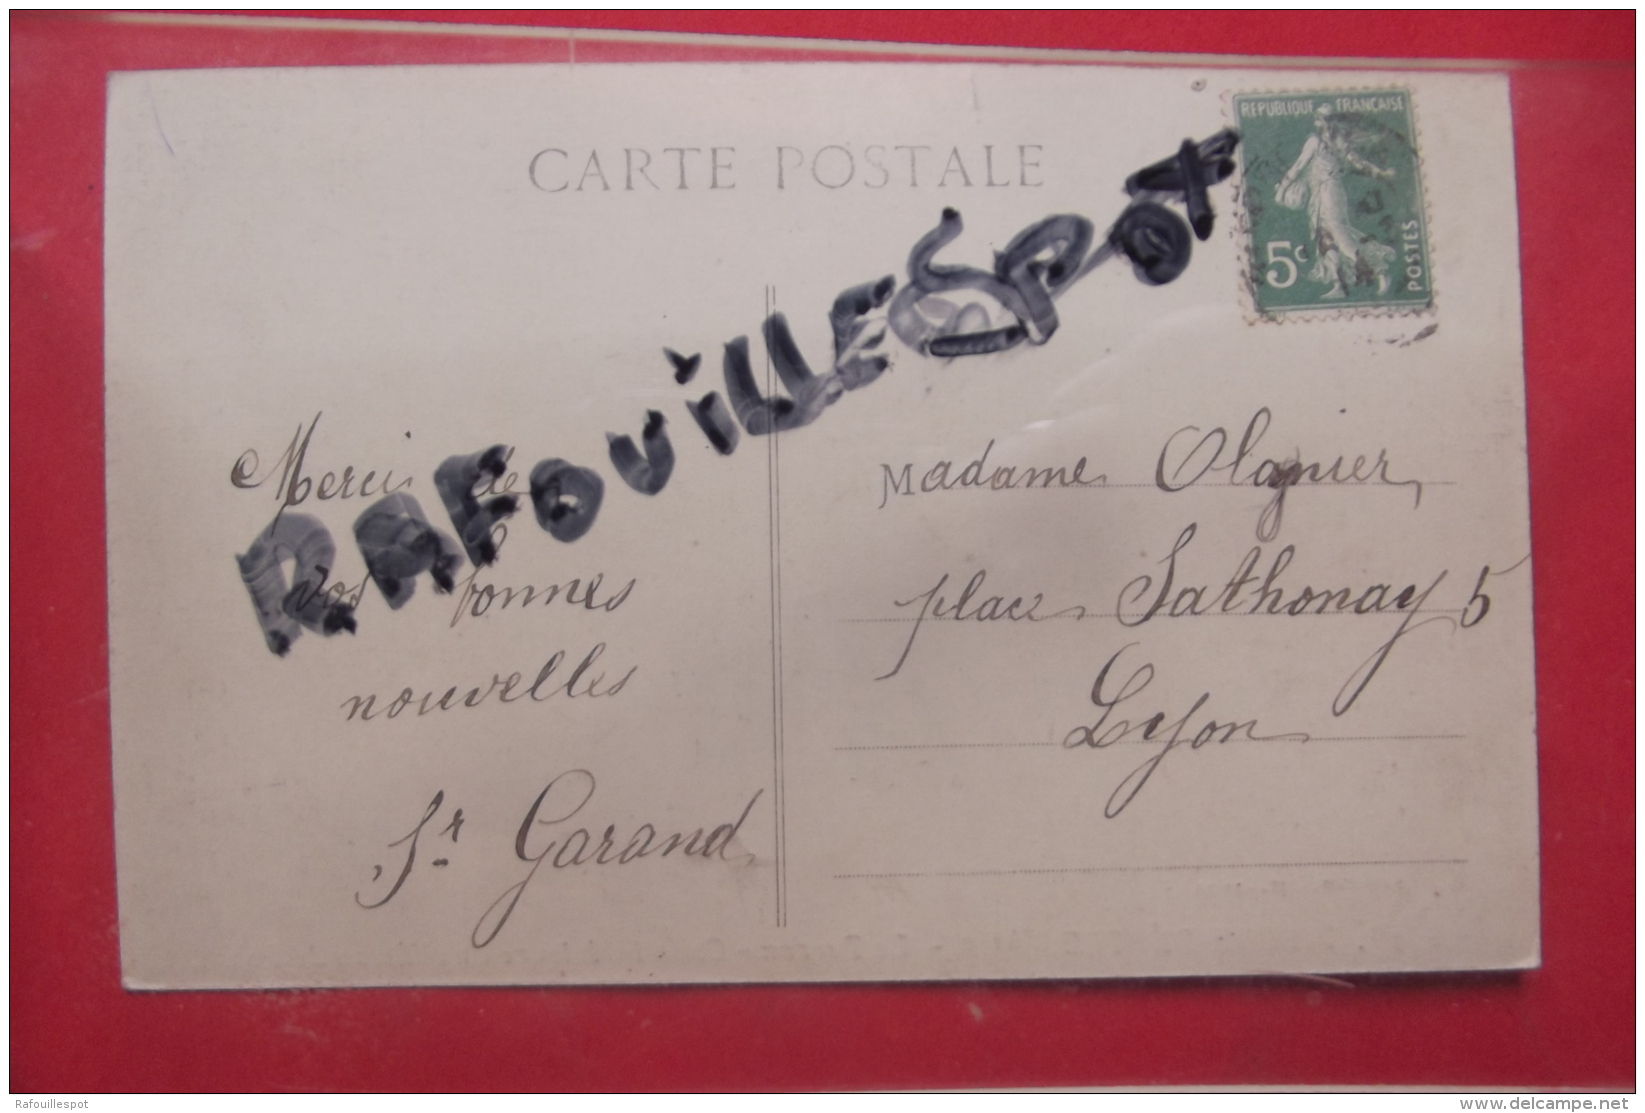 CARTE POSTALE
REPUBLIQUE FRANÇAISE
5c
POSTES
RAFOUILLESPOT
Merci de
vos bonnes
nouvelles
Sr Garand
Madame Olagnier
place Sathonay 5
Lyon
Rafouillespot
delcampe.net